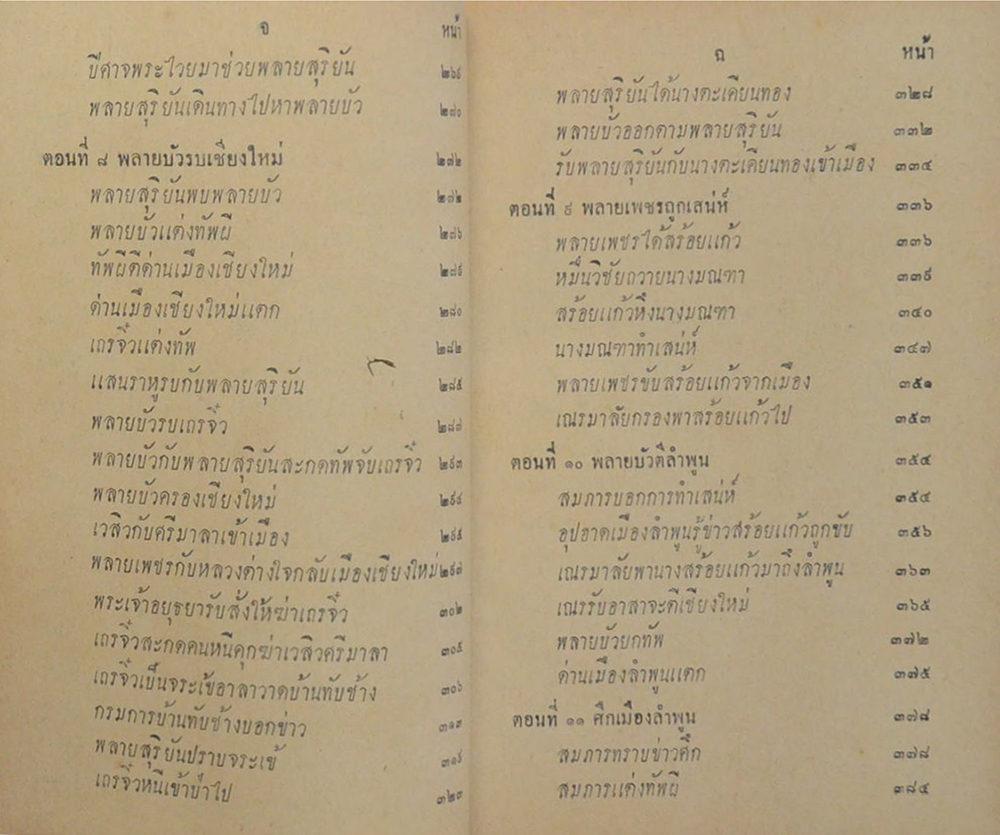 จ
หน้า
ปีศาจพระไวยมาช่วยพลายสุริยัน ๒๖๙
พลายสุริยันเดินทางไปหาพลายบัว ๒๗๐
ตอนที่ ๘ พลายบัวรบเชียงใหม่ ๒๗๒
พลายสุริยันพบพลายบัว ๒๗๒
พลายบัวแต่งทัพผี ๒๗๖
ทัพผีตีด่านเมืองเชียงใหม่ ๒๗๙
ด่านเมืองเชียงใหม่แตก ๒๘๐
เถรจิ๋วแต่งทัพ ๒๘๒
แสนราหูรบกับพลายสุริยัน ๒๘๕
พลายบัวรบเถรจิ๋ว ๒๘๗
พลายบัวกับพลายสุริยันสะกดทัพจับเถรจิ๋ว ๒๙๓
พลายบัวครองเชียงใหม่ ๒๙๔
เวสิวกับศรีมาลาเข้าเมือง ๒๙๕
พลายเพชรกับหลวงต่างใจกลับเมืองเชียงใหม่ ๒๙๗
พระเจ้าอยุธยารับสั่งให้ฆ่าเถรจิ๋ว ๓๐๒
เถรจิ๋วสะกดคนหนีคุกฆ่าเวสิวศรีมาลา ๓๐๕
เถรจิ๋วเป็นจระเข้อาลาวาดบ้านทับช้าง ๓๐๖
กรมการบ้านทับช้างบอกข่าว ๓๑๓
พลายสุริยันปราบจระเข้ ๓๑๙
เถรจิ๋วหนีเข้าป่าไป ๓๒๓
ฉ
หน้า
พลายสุริยันได้นางตะเคียนทอง ๓๒๘
พลายบัวออกตามพลายสุริยัน ๓๓๒
รับพลายสุริยันกับนางตะเคียนทองเข้าเมือง ๓๓๔
ตอนที่ ๙ พลายเพชรถูกเสน่ห์ ๓๓๖
พลายเพชรได้สร้อยแก้ว ๓๓๖
หมื่นวิชัยถวายนางมณฑา ๓๓๙
สร้อยแก้วหึงนางมณฑา ๓๔๐
นางมณฑาทำเสน่ห์ ๓๔๗
พลายเพชรขับสร้อยแก้วจากเมือง ๓๕๑
เณรมาลัยกรองพาสร้อยแก้วไป ๓๕๓
ตอนที่ ๑๐ พลายบัวตีลำพูน ๓๕๔
สมภารบอกการทำเสน่ห์ ๓๕๔
อุปฮาดเมืองลำพูนรู้ข่าวสร้อยแก้วถูกขับ ๓๕๖
เณรมาลัยพานางสร้อยแก้วมาถึงลำพูน ๓๖๓
เณรรับอาสาจะตีเชียงใหม่ ๓๖๕
พลายบัวยกทัพ ๓๗๒
ด่านเมืองลำพูนแตก ๓๗๕
ตอนที่ ๑๑ ศึกเมืองลำพูน ๓๗๘
สมภารทราบข่าวศึก ๓๗๘
สมภารแต่งทัพผี ๓๘๔